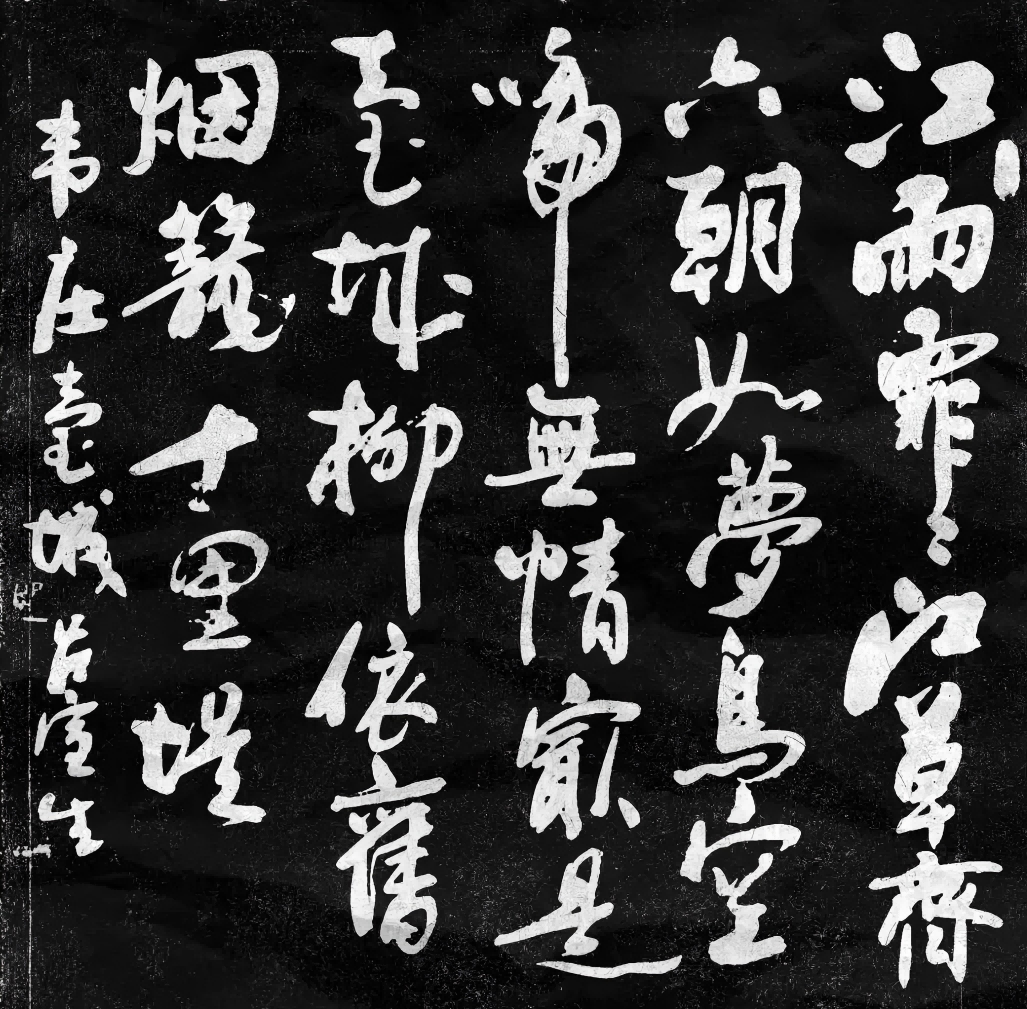 江雨霏〻江草齊
六朝如夢鳥空
啼無情㝡是
臺城柳依舊
烟籠十里堤
韦庄臺城 若虛生